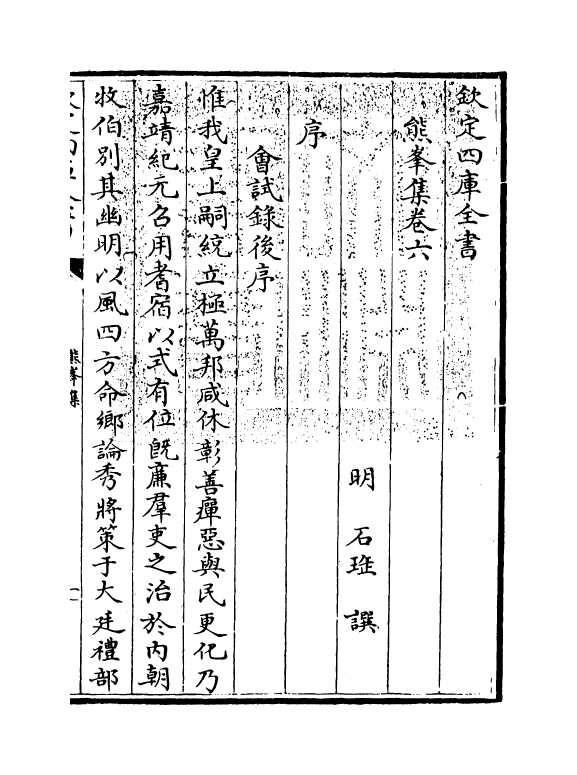 欽定四庫全書
熊峯集卷六
明 石珤 撰
序
會試錄後序
惟我皇上嗣統立極萬邦咸休彰善癉惡與民更化乃
嘉靖紀元召用耆宿以式有位既廉羣吏之治於内朝
牧伯别其幽明以風四方命鄉論秀將策于大廷禮部
熊峯集
一